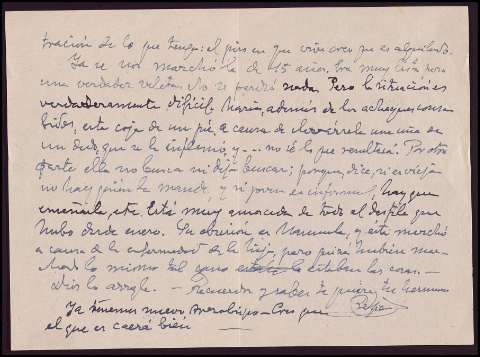 tración de lo que tengo: el piso en que vive creo que es alquilado.
Ya se nos marchó la de 15 años. Era muy lista pero
una verdadera veleta. No se perdió nada. Pero la situación es
verdaderamente difícil. María, además de los achaques consa-
bidos, está coja de un pie a causa de clavársele una uña en
un dedo, que se le inflamó y... no sé lo que resultará. Por otra
parte ella no busca ni deja buscar; porque, dice, si es vieja
no hay quien la mande, y si joven es informal, hay que
enseñarla, etc. Está muy amoscada de todo el desfile que
hubo desde enero. Su obsesión es Manuela, y ésta marchó
a causa de la enfermedad de la hija, pero quizá también mar-
chara lo mismo tal como estaban las cosas.—
Dios lo arregle. — Recuerdos y sabes te quiere tu hermano
Ya tenemos nuevo Arzobispo — Creo que
el que es caerá bién